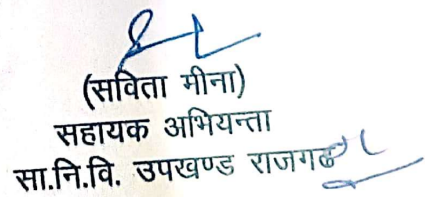 (सविता मीना)
सहायक अभियन्ता
सा.नि.वि. उपखण्ड राजगढ